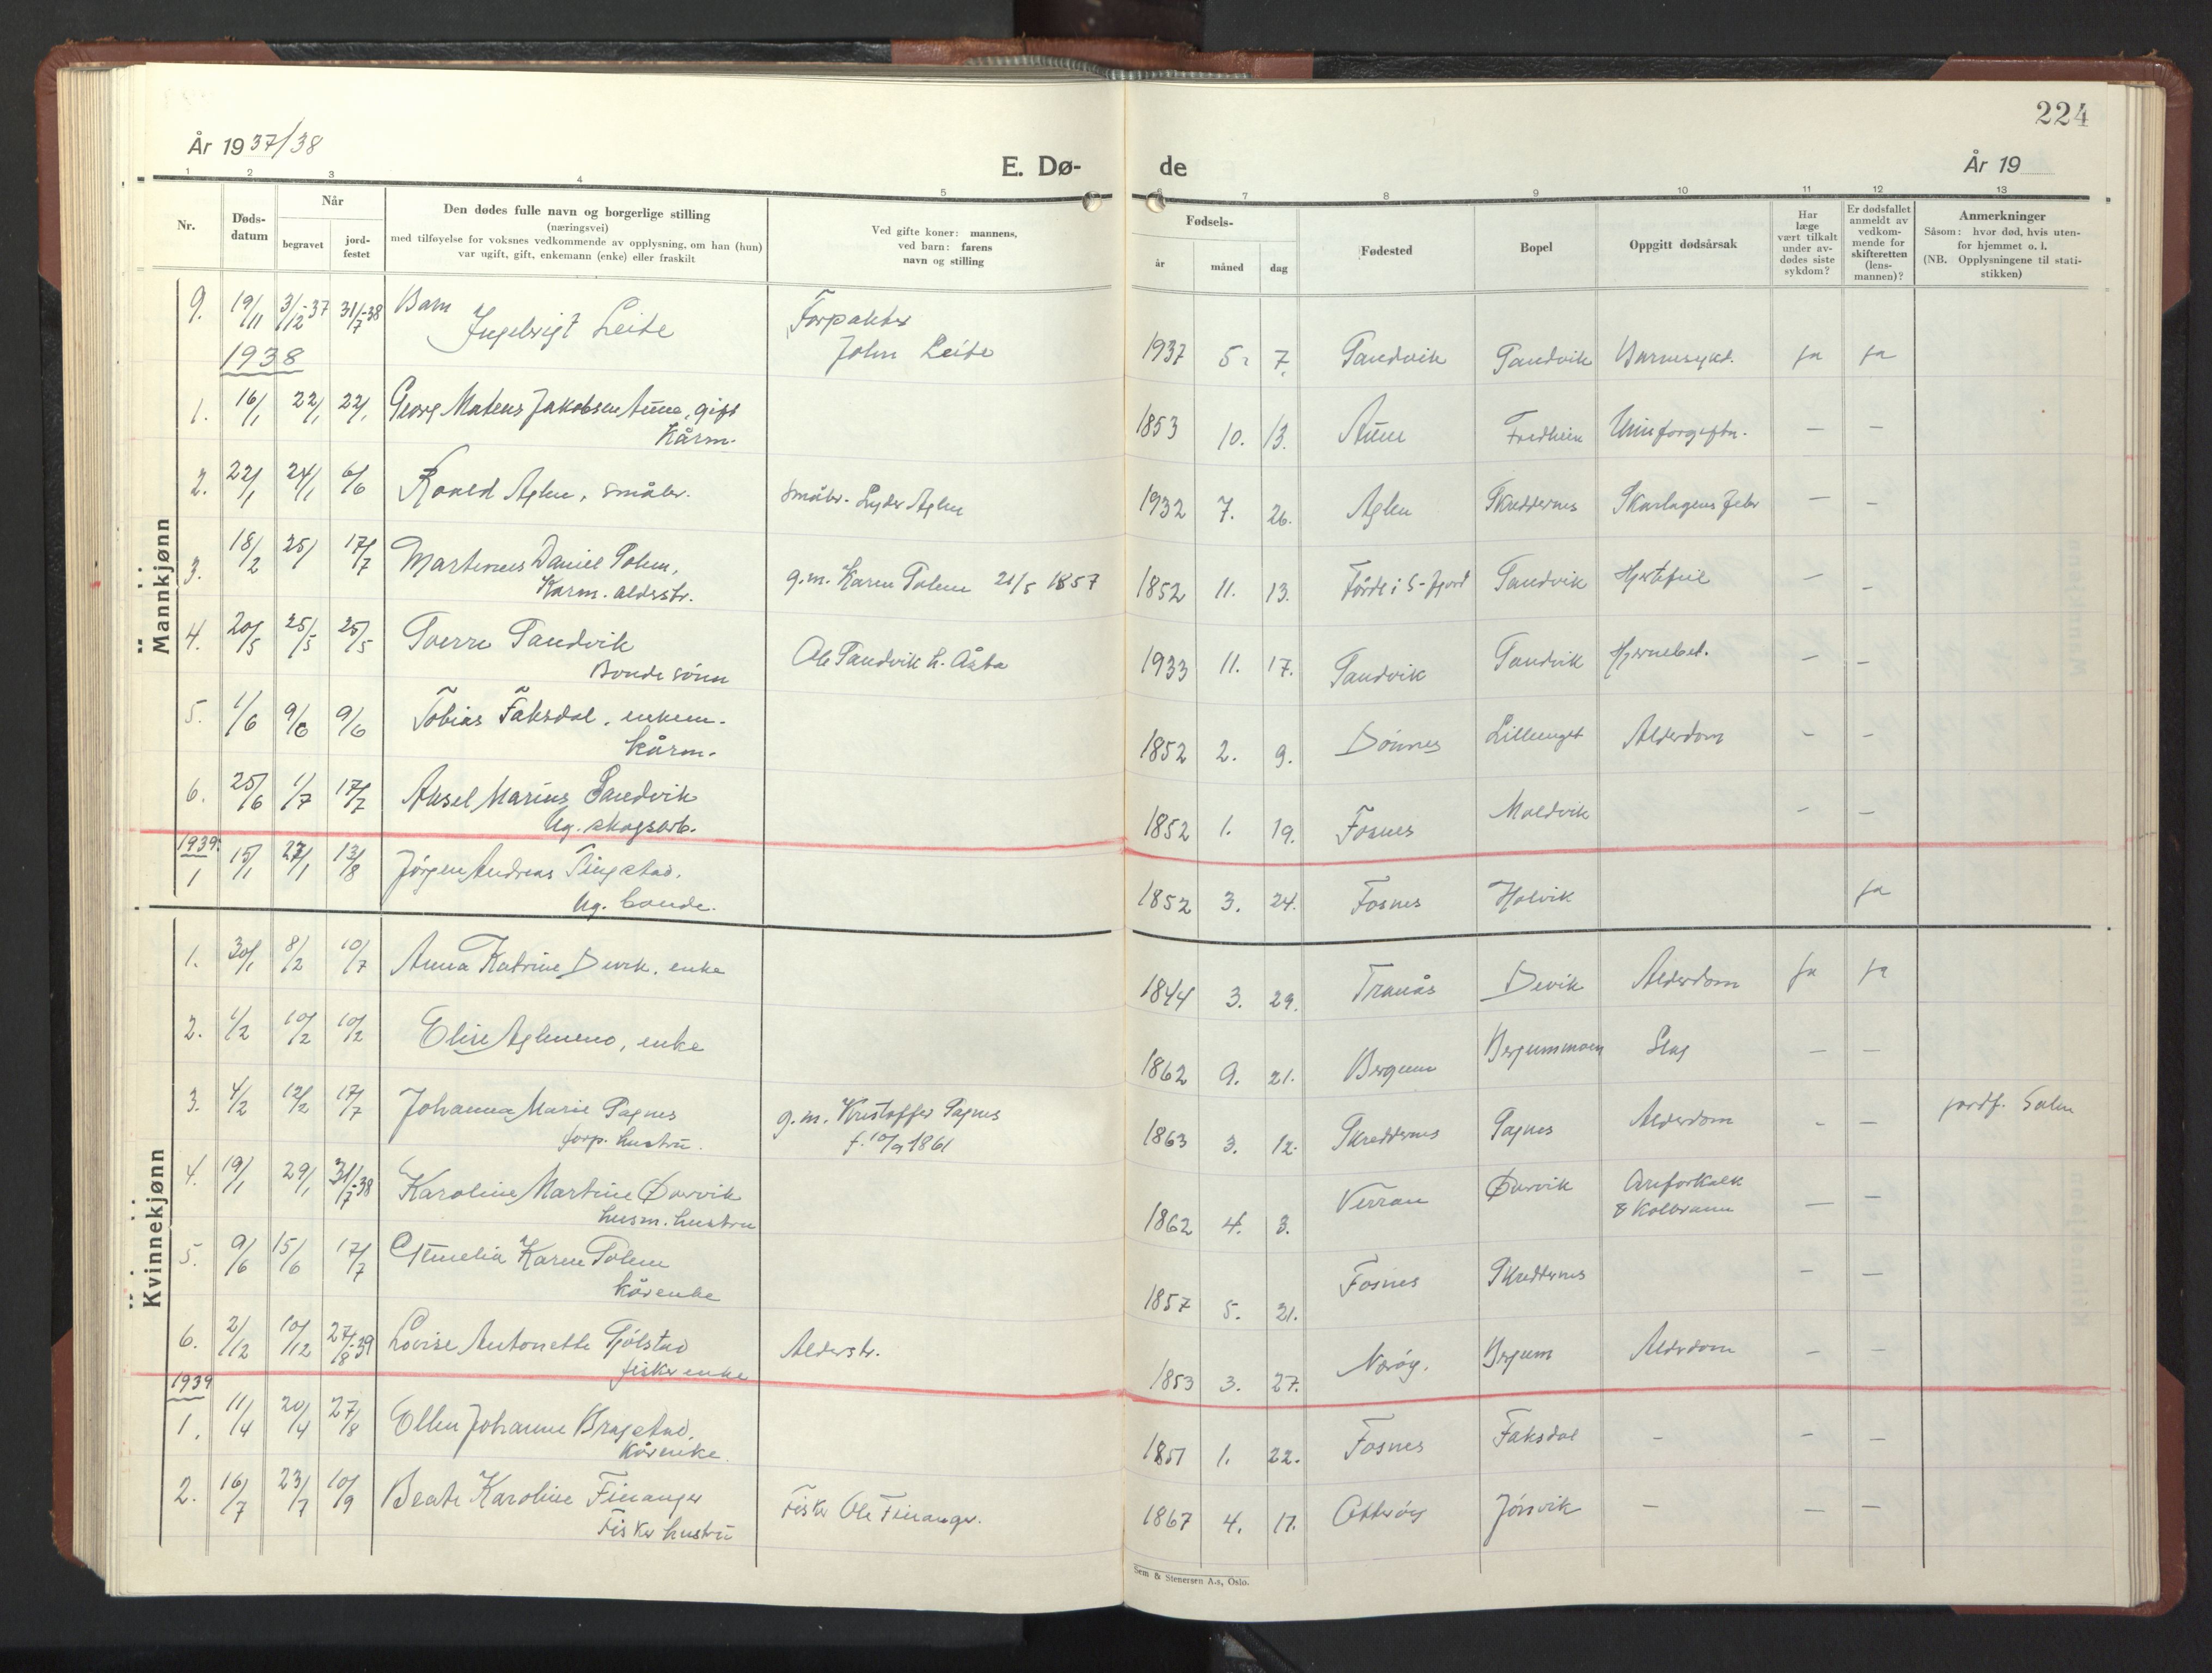 224
År 1937/38
E. Dø-
de
År 19
1 2 3 4 5 6 7 8 9 10 11 12 13
Nr.
Døds-
datum
Når
begravet
jord-
festet
Den dødes fulle navn og borgerlige stilling
(næringsvei)
med tilføyelse for voksnes vedkommende av opplysning, om han (hun)
var ugift, gift, enkemann (enke) eller fraskilt
Ved gifte koner: mannens,
ved barn: farens
navn og stilling
Fødsels-
år
måned
dag
Fødested
Bopel
Oppgitt dødsårsak
Har
læge
vært tilkalt
under av-
dødes siste
sykdom?
Er dødsfallet
anmeldt av
vedkom-
mende for
skifteretten
(lens-
mannen)?
Anmerkninger
Såsom: hvor død, hvis uten-
for hjemmet o. l.
(NB. Opplysningene til stati-
stikken)
Mannkjønn
9. 19/11 3/12-37 31/7-38 Barn
Ingebrigt Leite
Forpakter
John Leite
1937 5. 7. Sandvik Sandvik Barnesykd. ja ja
1938
1. 16/1 22/1 22/1 Georg Mateus Jakobsen Aune, gift
Kårm.
1853 10. 13. Aune Fredheim — —
2. 22/1 24/1 6/6 Roald Aglen, småbr.
småbr. Lyder Aglen
1932 7. 26. Aglen Skreddernes Skarlagensfeber — —
3. 18/2 25/ 17/7 Martinus Daniel Solem,
Karm. alderstr.
g.m. Karen Solem 21/5 1857
1852 11. 13. Førde i S-fjord Sandvik Hjertefeil — —
4. 20/5 25/5 25/5 Sverre Sandvik
Bondesönn
Ole Sandvik h. Åsta
1933 11. 17. Sandvik Sandvik Hjernebet. — —
5. 1/6 9/6 9/6 Tobias Faksdal, enkem.
Kårm.
1852 2. 9. Dönnes Lillenget Alderdom — —
6. 25/6 1/7 17/7 Aksel Marius Sandvik
Ug. skogsarb.
1852 1. 19. Fosnes Moldvik — —
1939
1 15/1 27/1 13/8 Jörgen Andreas Tingstad,
Ug. bonde.
1852 3. 24. Fosnes Holvik ja
Kvinnekjønn
1. 30/1 8/2 10/7 Anna Katrine Devik, enke
1844 3. 29. Tranås Devik Alderdom ja ja
2. 1/2 10/2 10/2 Elise Aglenmo, enke
1862 9. 21. Bergum Bergummoen Slag — —
3. 4/2 12/2 17/7 Johanna Marie Sagnes
forp. hustru.
g.m. Kristoffer Sagnes
f. 10/9 1861
1863 3. 12. Skreddernes Sagnes Alderdom — — jordf. Salen
4. 19/1 29/1 31/7-38 Karoline Martine Ørvik
husm. hustru
1862 4. 3. Verran Ørvik Areforkalk
& Kolbrann — —
5. 9/6 15/6 17/7 Karen Solem
kårenke
1857 5. 21. Fosnes Skreddernes — —
6. 2/12 10/12 27/8-39 Lovise Antonette Gjölstad
fisker enke
Alderstr.
1853 3. 27. Nærøy. Bergum Alderdom — —
1939
1. 11/4 20/4 27/8 Ellen Johanne Bragstad,
Kårenke.
1851 1. 22. Fosnes Faksdal — — —
2. 16/7 23/7 10/9 Beate Karoline Finanger
Fisker hustru
Fisker Ole Finanger.
1867 4. 17. Otterøy Jörsvik — — —
Sem & Stenersen A.s, Oslo.